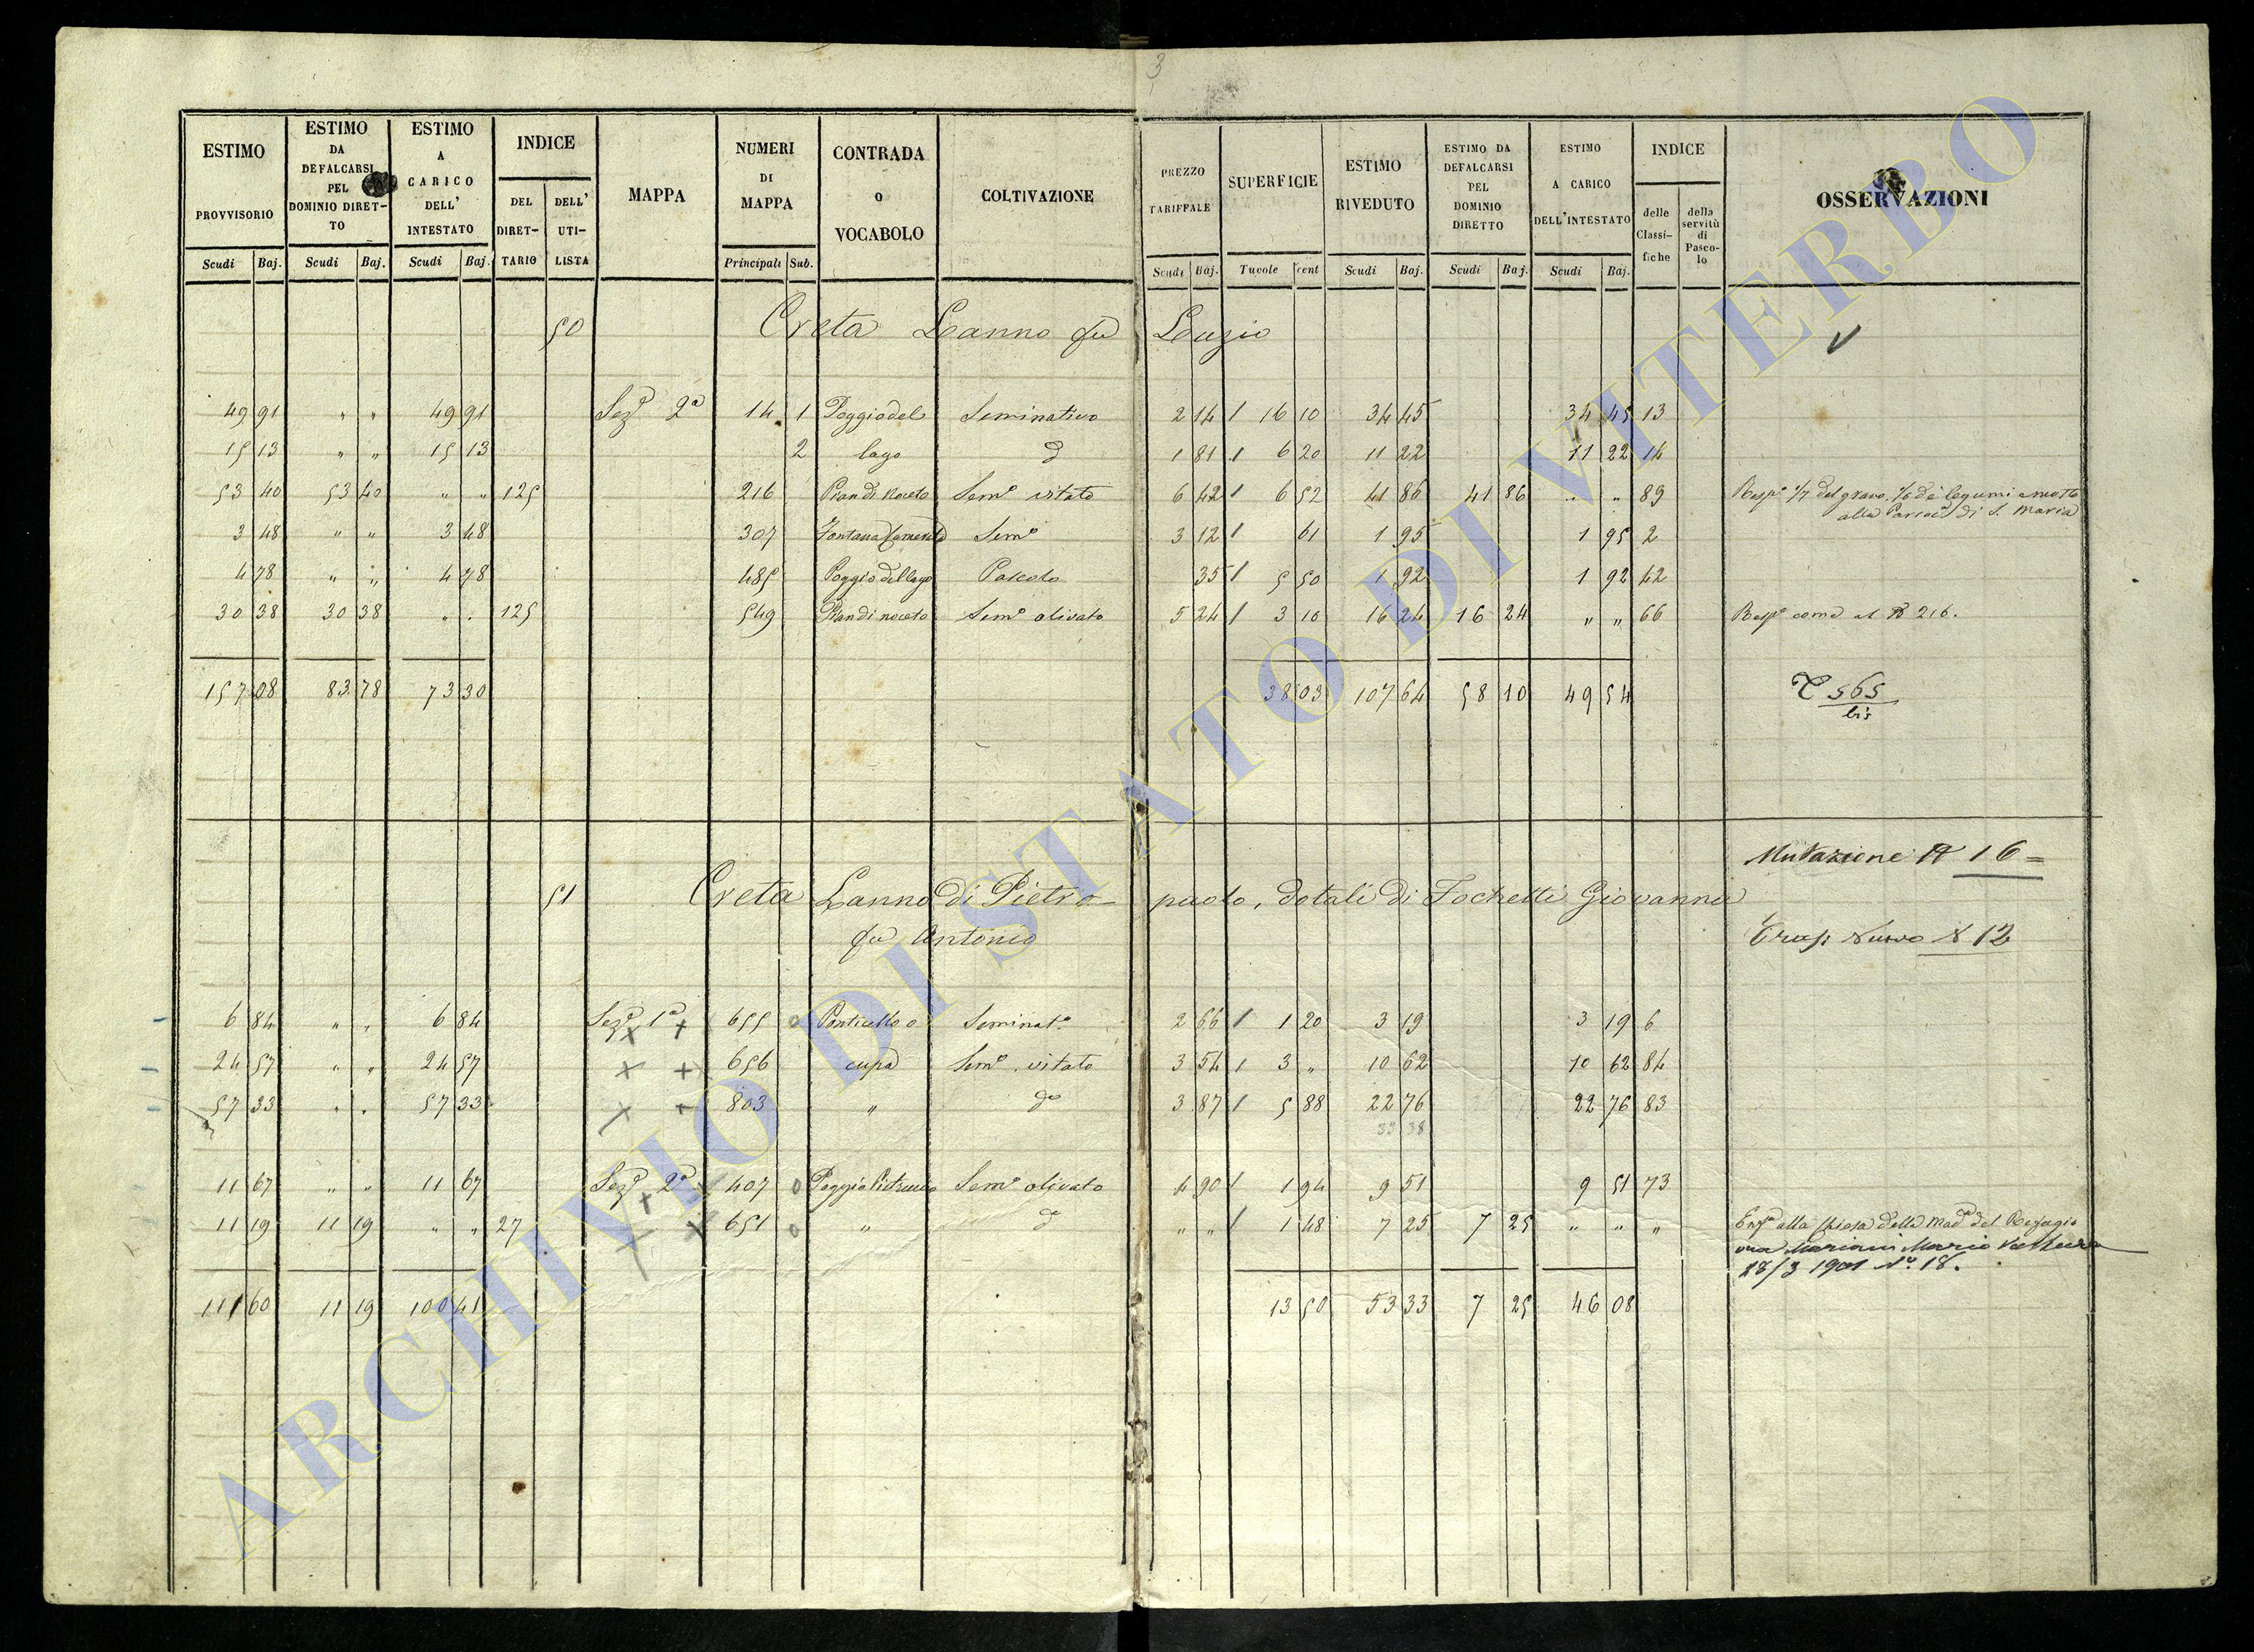 3
ESTIMO PROVVISORIO
ESTIMO DA DEFALCARSI PEL DOMINIO DIRETTO
ESTIMO A CARICO DELL' INTESTATO
INDICE
DEL DIRETTARIO
DELL' UTILISTA
MAPPA
NUMERI DI MAPPA
CONTRADA o VOCABOLO
COLTIVAZIONE
PREZZO TARIFFALE
SUPERFICIE
ESTIMO RIVEDUTO
ESTIMO DA DEFALCARSI PEL DOMINIO DIRETTO
ESTIMO A CARICO DELL'INTESTATO
INDICE
delle Classifiche
della servitù di Pascolo
OSSERVAZIONI
Scudi Baj. Scudi Baj. Scudi Baj. Principali Sub. Scudi Baj. Tavole cent Scudi Baj. Scudi Baj. Scudi Baj.
50 Creta Lanno fu Luzio
49 91 " " 49 91 Sezᵉ 2ᵃ 14 1 Poggio del Seminativo 2 14 / 16 10 34 45 34 45 13
15 13 " " 15 13 2 lago dᵒ 1 81 / 6 20 11 22 11 22 14
53 40 53 40 " " 125 216 Pian di Noceto Semᵒ vitato 6 42 / 6 52 41 86 41 86 " " 89 Rispᵃ 1/7 del grano, 1/6 de legumi e mosto
alla di S. Maria
3 48 " " 3 48 307 Fontana Semᵒ 3 12 / 61 1 95 1 95 2
4 78 " " 4 78 485 Poggio del lago Pascolo 35 / 5 50 1 92 1 92 42
30 38 30 38 " " 125 549 Pian di noceto Semᵒ olivato 5 24 / 3 10 16 24 16 24 " " 66 Rispᵃ come al N 216.
157 08 83 78 73 30 38 03 107 64 58 10 49 54
565
bis
Mutazione N 16 =
51 Creta Lanno di Pietropaolo, dotali di Fochetti Giovanna
fu Antonio
Trasp Nuovo N 12
6 84 " " 6 84 Sezᵉ 1ᵃ 655 0 Ponticello o Seminatᵒ 2 66 / 1 20 3 19 3 19 6
24 57 " " 24 57 656 cupa Semᵒ vitato 3 54 / 3 " 10 62 10 62 84
57 33 " " 57 33 803 " dᵒ 3 87 / 5 88 22 76 22 76 83
33 38
11 67 " " 11 67 Sezᵉ 2ᵃ 407 0 Poggio Semᵒ olivato 4 90 / 1 94 9 51 9 51 73
11 19 11 19 " " 27 651 0 " dᵒ " " / 1 48 7 25 7 25 " " " Enfᵃ alla Chiesa della Madᵃ del Refugio
ora Mariani Mario
18/3 1901 Nᵒ. 18.
111 60 11 19 100 41 13 50 53 33 7 25 46 08
ARCHIVIO DI STATO DI VITERBO